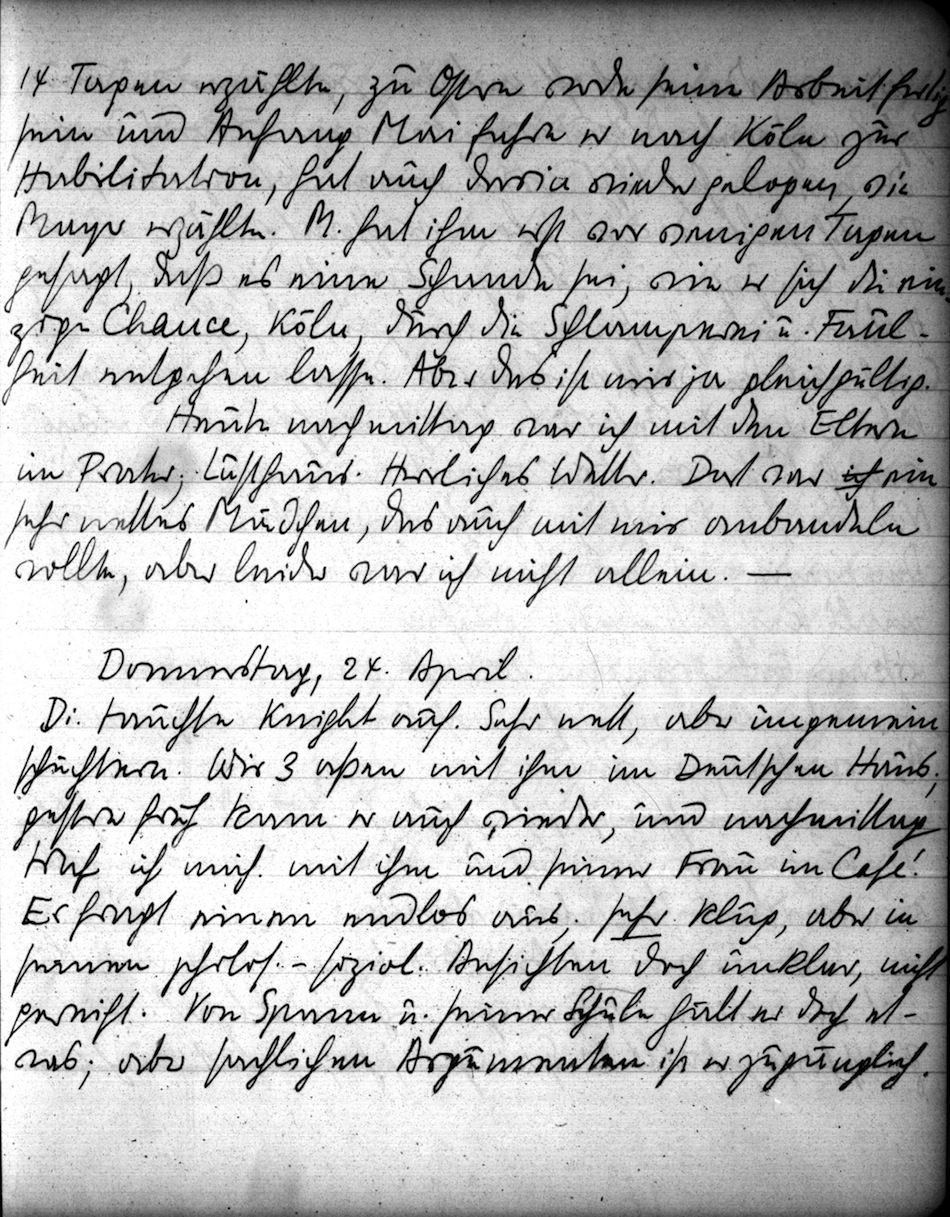 14 Tagen erzählte, zu Ostern werde seine Arbeit fertig
sein und Anfang Mai fahre er nach Köln zur
Habilitation, hat auch wieder gelogen, wie
Mayer erzählte. M. hat ihm erst vor wenigen Tagen
gesagt, daß es eine Schande sei, wie er sich die ein
zige Chance, Köln, durch die Schlamperei u. Faul-
heit entgehen lasse. Aber das ist mir ja gleichgültig.
Heute nachmittag war ich mit den Eltern
im Prater, Lusthaus. Herrliches Wetter. Dort war ich ein
sehr nettes Mädchen, das auch mit mir anbandeln
wollte, aber leider war ich nicht allein. —
Donnerstag, 24. April.
Di. tauchte Knight auf. Sehr nett, aber ungemein
schüchtern. Wir 3 aßen mit ihm im Deutschen Haus,
gestern früh kam er auch wieder, und nachmittag
traf ich mich mit ihm und seiner Frau im Café.
Er fragt einen endlos aus, sehr klug, aber in
seinen philos.-soziol. Ansichten doch unklar, nicht
gereift. Von Spann u. seiner Schule hält er doch et-
was; aber sachlichen Argumenten ist er zugänglich.